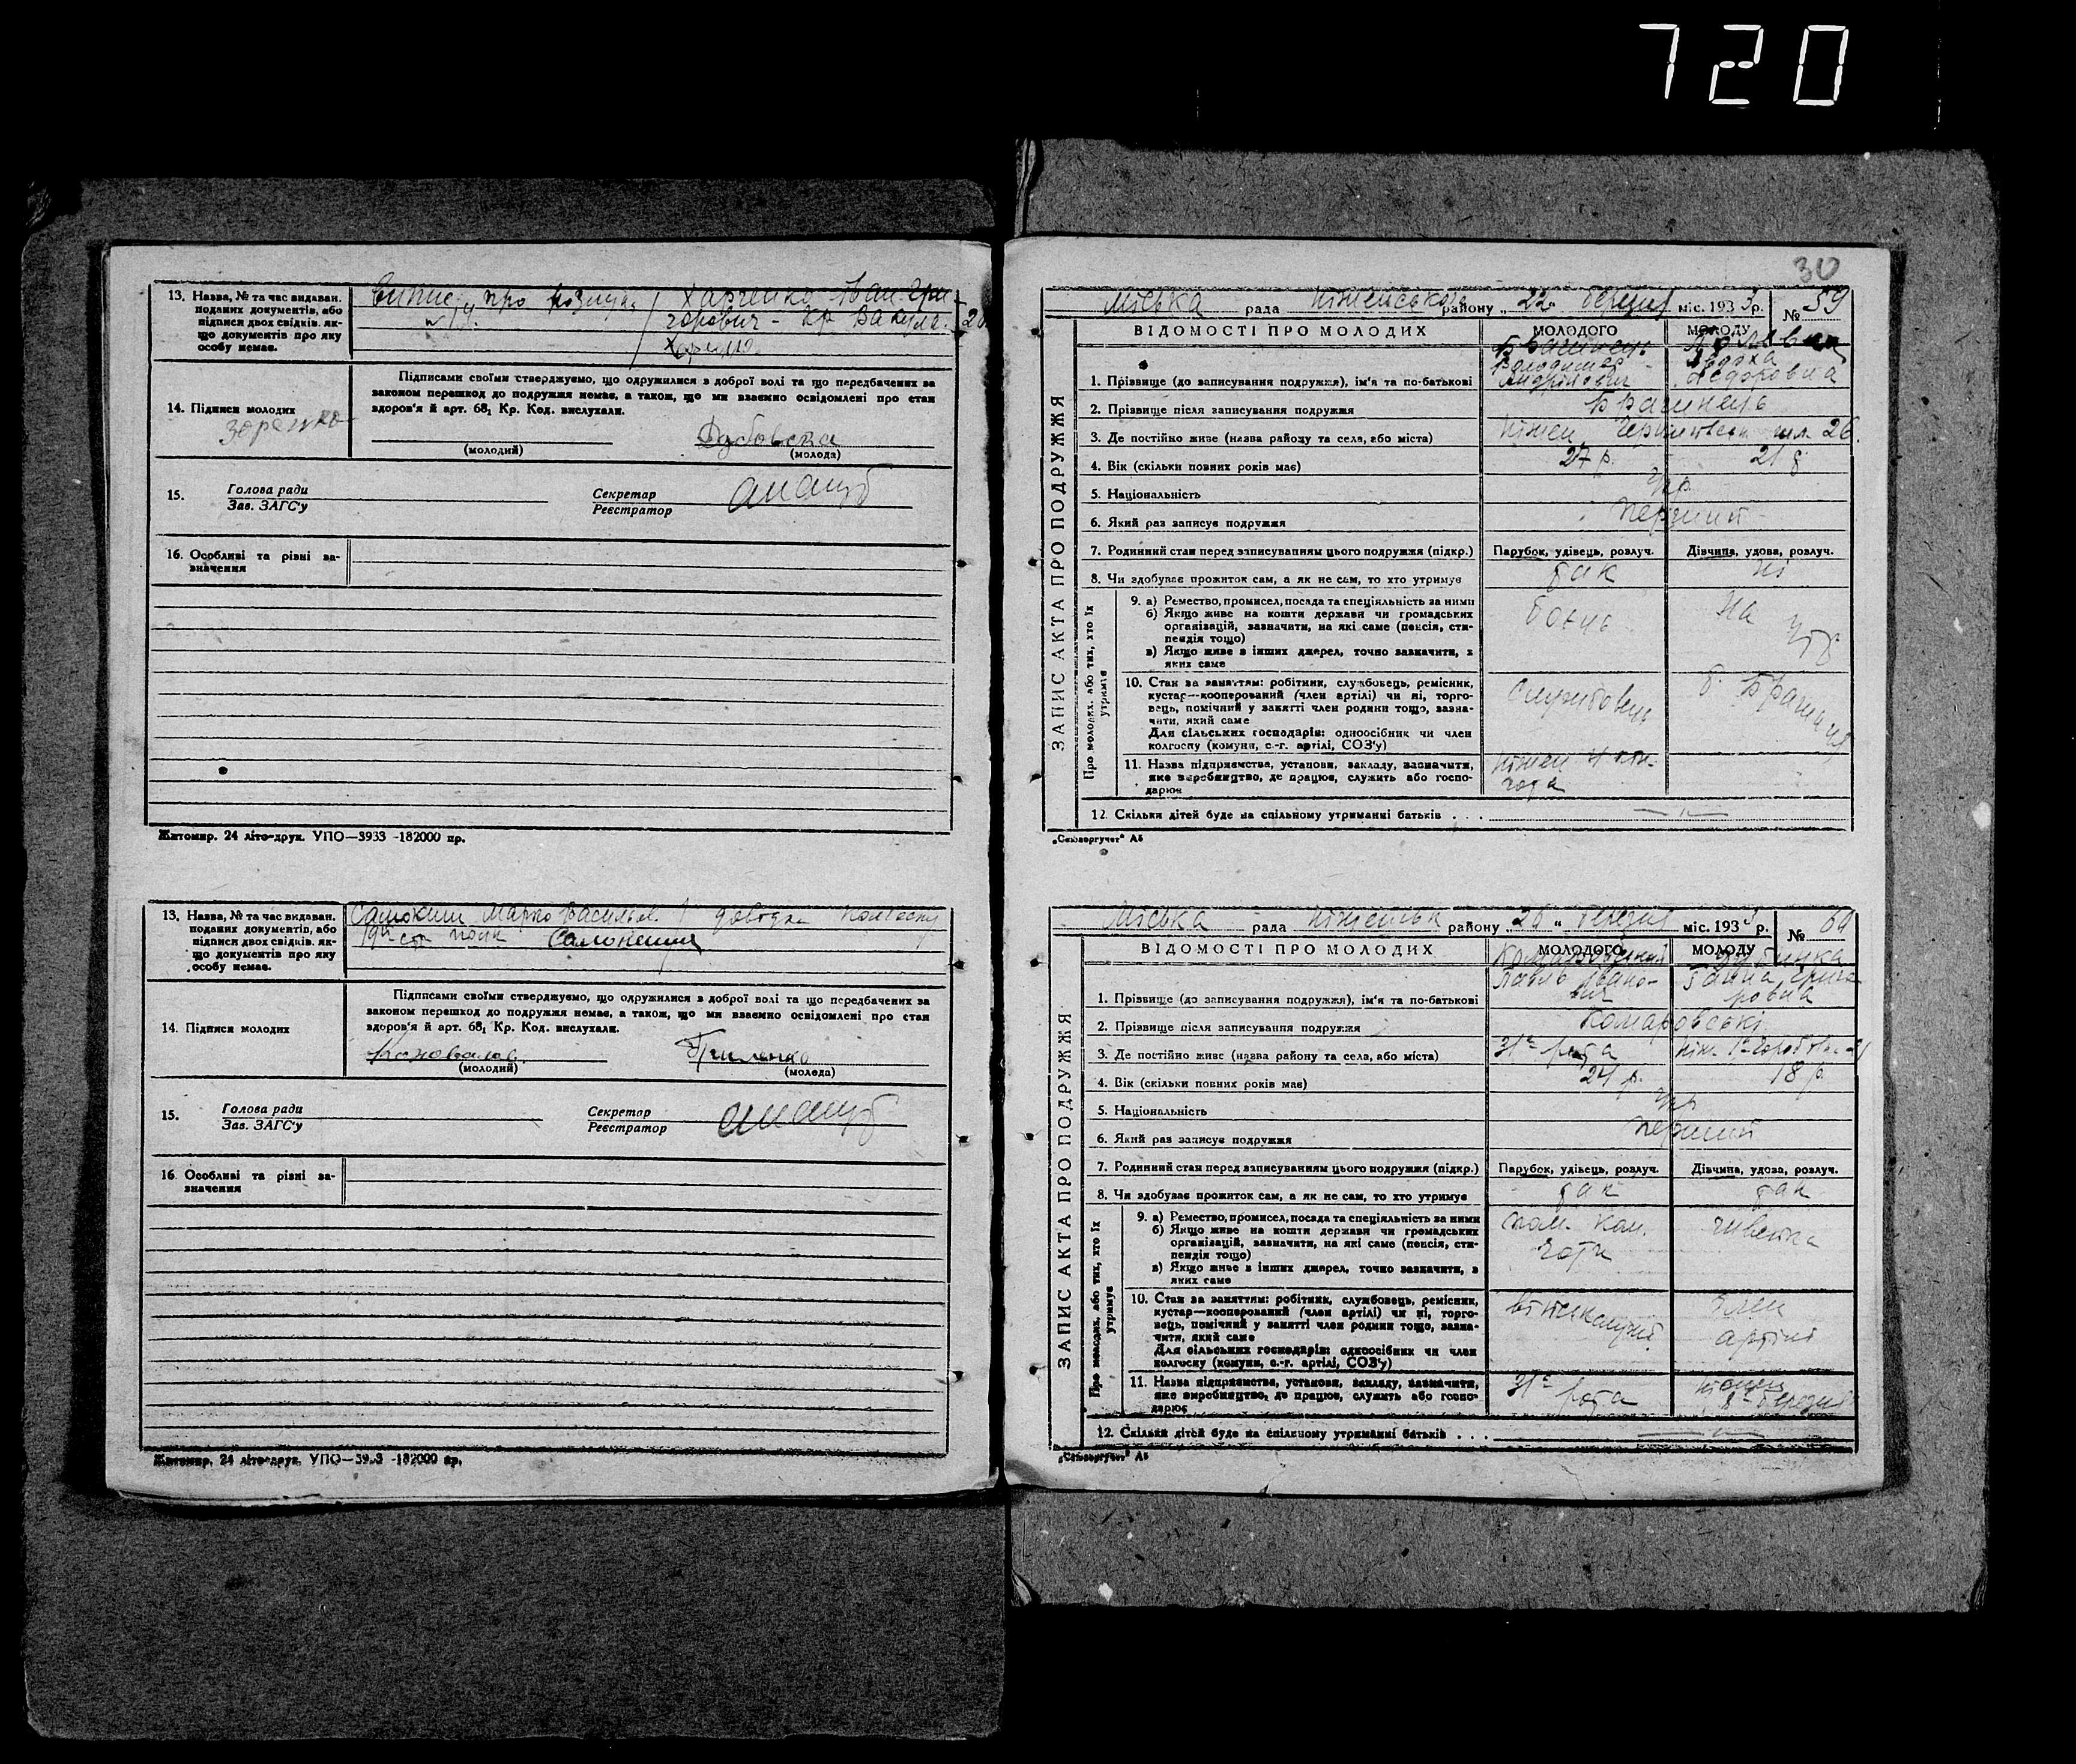 720
13. Назва, № та час видаван.
поданих документів, або
підписи двох свідків. як-
що документів про яку
особу немає.
про Харченко Іван Гри-
горович - Кр
14. Підписи молодих
Підписами своїми стверджуємо, що одружилися в доброї волі та що передбачених за
законом перешкод до подружжя немає, а також, що ми взаємно освідомлені про стан
здоров'я й арт. 68, Кр. Код. вислухали.
(молодий)
Дубовска
(молода)
15. Голова ради
Зав. ЗАГС'у
Секретар
Реєстратор
16. Особливі та різні за-
значення
Житомир. 24 літо-друк. УПО—3933 -182000 пр.
13. Назва, № та час видаван.
поданих документів, або
підписи двох свідків. як-
що документів про яку
особу немає.
Самокиш Марко
14. Підписи молодих
Підписами своїми стверджуємо, що одружилися в доброї волі та що передбачених за
законом перешкод до подружжя немає, а також, що ми взаємно освідомлені про стан
здоров'я й арт. 68, Кр. Код. вислухали.
Коновалов
(молодий)
(молода)
15. Голова ради
Зав. ЗАГС'у
Секретар
Реєстратор
16. Особливі та різні за-
значення
Житомир. 24 літо-друк. УПО—3933 -182000 пр.
30
Міська рада Ніженського району „22“ березня міс. 1933 р. № 59
ЗАПИС АКТА ПРО ПОДРУЖЖЯ
ВІДОМОСТІ ПРО МОЛОДИХ
МОЛОДОГО
МОЛОДУ
1. Прізвище (до записування подружжя), ім'я та по-батькові
Володимир
Андрійович
Явдоха
Федоровна
2. Прізвище після записування подружжя
3. Де постійно живе (назва району та села, або міста)
Ніжен 26.
4. Вік (скільки повних років має) 27 р. 21 р
5. Національність Укр.
6. Який раз записує подружжя Перший
7. Родинний стан перед записуванням цього подружжя (підкр.)
Парубок, удівець, розлуч.
Дівчина, удова, розлуч.
8. Чи здобуває прожиток сам, а як не сам, то хто утримує
так ні
Про молодих, або тих, хто їх утримує
9. а) Ремество, промисел, посада та спеціяльність за ними
б) Якщо живе на кошти держави чи громадських
організацій, зазначити, на які саме (пенсія, сти-
пендія тощо)
в) Якщо живе в інших джерел, точно зазначити, з
яких саме
боєць
На утр
10. Стан за заняттям: робітник, службовець, ремісник,
кустар—кооперований (член артілі) чи ні, торго-
вець, помічний у занятті член родини тощо, зазна-
чити, який саме
Для сільських господарів: одноосібник чи член
колгоспу (комуни, с.-г. артілі, СОЗ'у)
Службовець
11. Назва підприємства, установи, закладу, зазначити,
яке виробництво, де працює, служить або госпо-
дарює
Ніжен
12. Скільки дітей буде на спільному утриманні батьків . . .
„Союзоргучет“ А5
Міська рада Ніженськ району „26“ березня міс. 1933 р. № 60
ЗАПИС АКТА ПРО ПОДРУЖЖЯ
ВІДОМОСТІ ПРО МОЛОДИХ
МОЛОДОГО
МОЛОДУ
1. Прізвище (до записування подружжя), ім'я та по-батькові
Павло Івано-
вич
Ганна Григо
ровна
2. Прізвище після записування подружжя
Комаровські
3. Де постійно живе (назва району та села, або міста)
31а рота
4. Вік (скільки повних років має) 24 р. 18 р.
5. Національність Укр
6. Який раз записує подружжя Перший
7. Родинний стан перед записуванням цього подружжя (підкр.)
Парубок, удівець, розлуч.
Дівчина, удова, розлуч.
8. Чи здобуває прожиток сам, а як не сам, то хто утримує
так так
Про молодих, або тих, хто їх утримує
9. а) Ремество, промисел, посада та спеціяльність за ними
б) Якщо живе на кошти держави чи громадських
організацій, зазначити, на які саме (пенсія, сти-
пендія тощо)
в) Якщо живе в інших джерел, точно зазначити, з
яких саме
пом. ком.
роти
швейка
10. Стан за заняттям: робітник, службовець, ремісник,
кустар—кооперований (член артілі) чи ні, торго-
вець, помічний у занятті член родини тощо, зазна-
чити, який саме
Для сільських господарів: одноосібник чи член
колгоспу (комуни, с.-г. артілі, СОЗ'у)
член
артілі
11. Назва підприємства, установи, закладу, зазначити,
яке виробництво, де працює, служить або госпо-
дарює
31а
рота
Ніжен
8е березня
12. Скільки дітей буде на спільному утриманні батьків . . .
„Союзоргучет“ А5